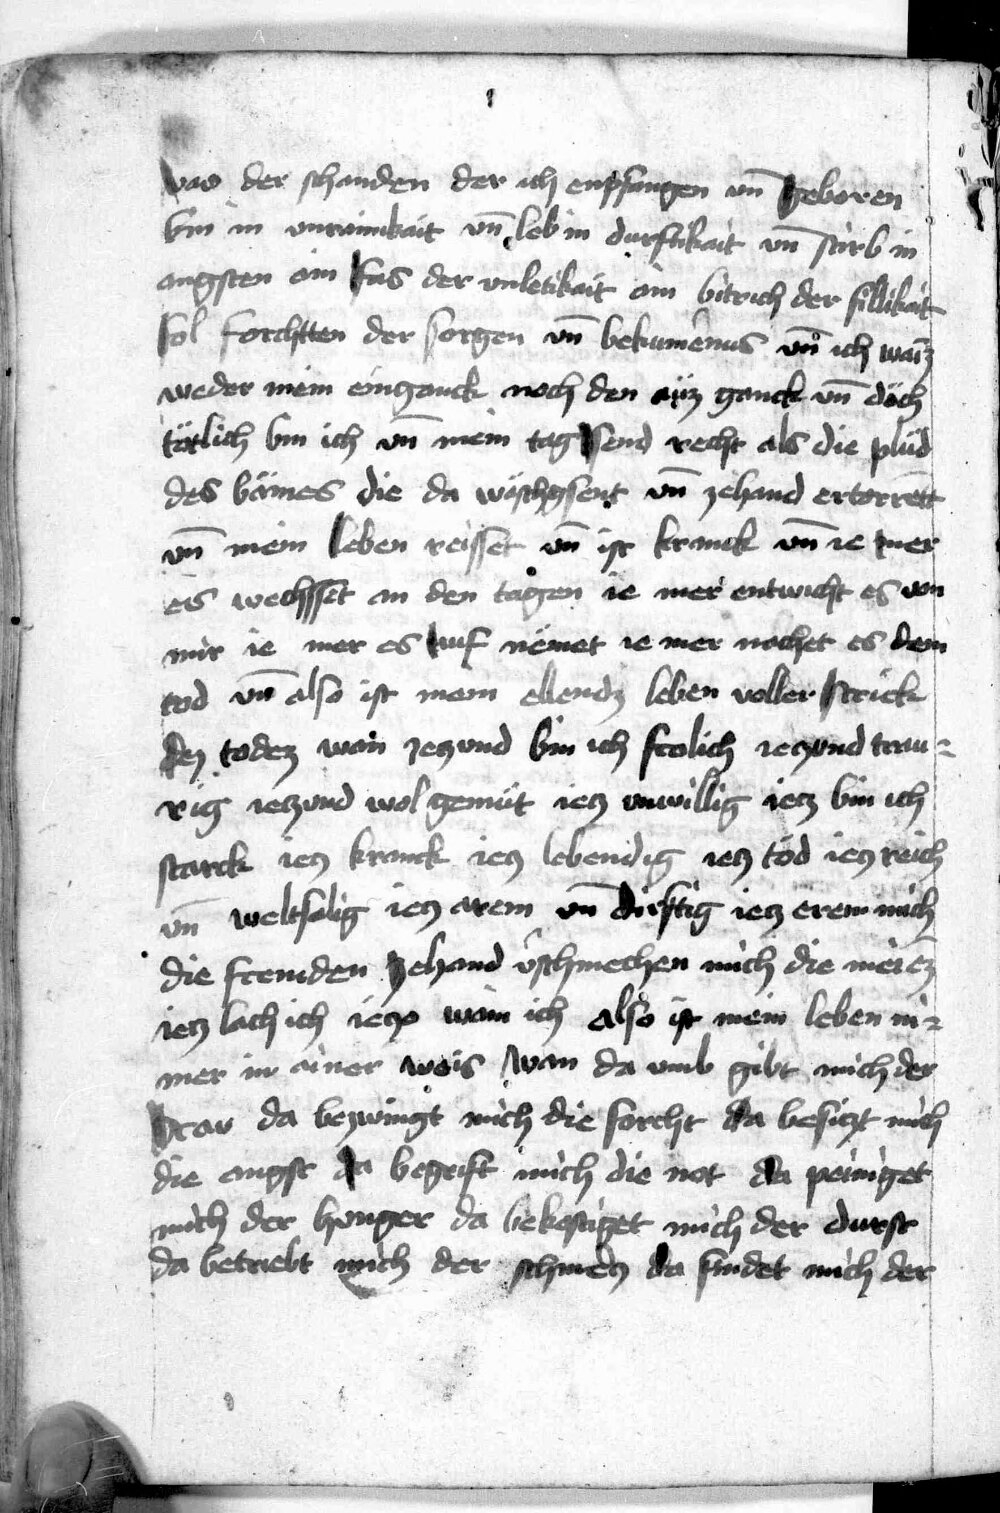 vas der schanden der ich enpfangen vn̄ geboren
bin in vnrainikait vn̄ leb in durftikait vn̄ stirb in
angsten ain fas der vnletikait ain bitrich der fillikait
fol forchtten der sorgen vn̄ bekumernus vn̄ ich waiz
weder mein einganck noch den auz ganck vn̄ doch
tötlich bin ich vn̄ mein tag send recht als die plüd
des bämes die da wäschssent vn̄ zehand ertorrent
vn̄ mein leben reisset vn̄ ist kranck vn̄ ie mer
es wechsset an den tagen ie mer entwicht es von
mir ie mer es auf nemet ie mer nachet es dem
tod vn̄ also ist mein ellendz leben voller strick
dez todez wan iezund bin ich frolich iezund trau-
rig iezund wol gemüt iez vnwillig iez bin ich
starck iez kranck iez lebendig iez töd iez reich
vn̄ weltsälig iez arem vn̄ dürftig iez erem mich
die fremden zehand v̄schmechen mich die meinē
iez lach ich iezo wain ich also ist mein leben ni-
mer in ainer weis wan da vmb gibt mich der
da bezwingt mich die forcht da besizt mich
die angst da begrift mich die not da peiniget
mich der hunger da bekestiget mich der durst
da betriebt mich der schmerz da findet mich der